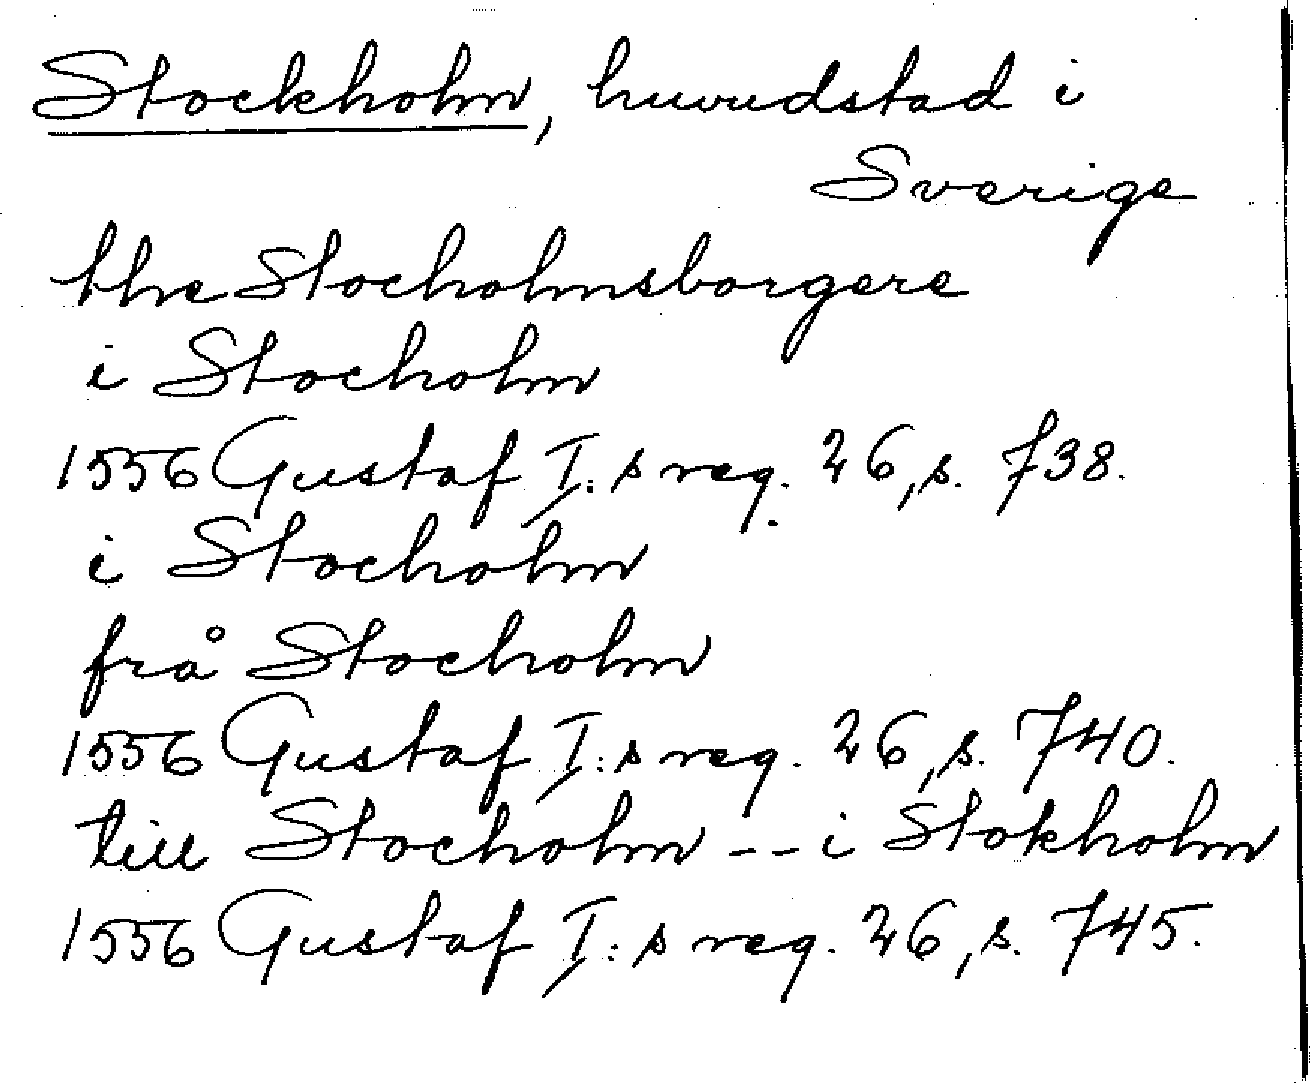 Stockholm, huvudstad i
Sverige
the Stocholmsborgere
i Stocholm
1556 Gustaf I:s reg. 26, s. 738.
i Stocholm
frå Stocholm
1556 Gustaf I:s reg. 26, s. 740.
till Stocholm -- i Stokholm
1556 Gustaf I:s reg. 26, s. 745.